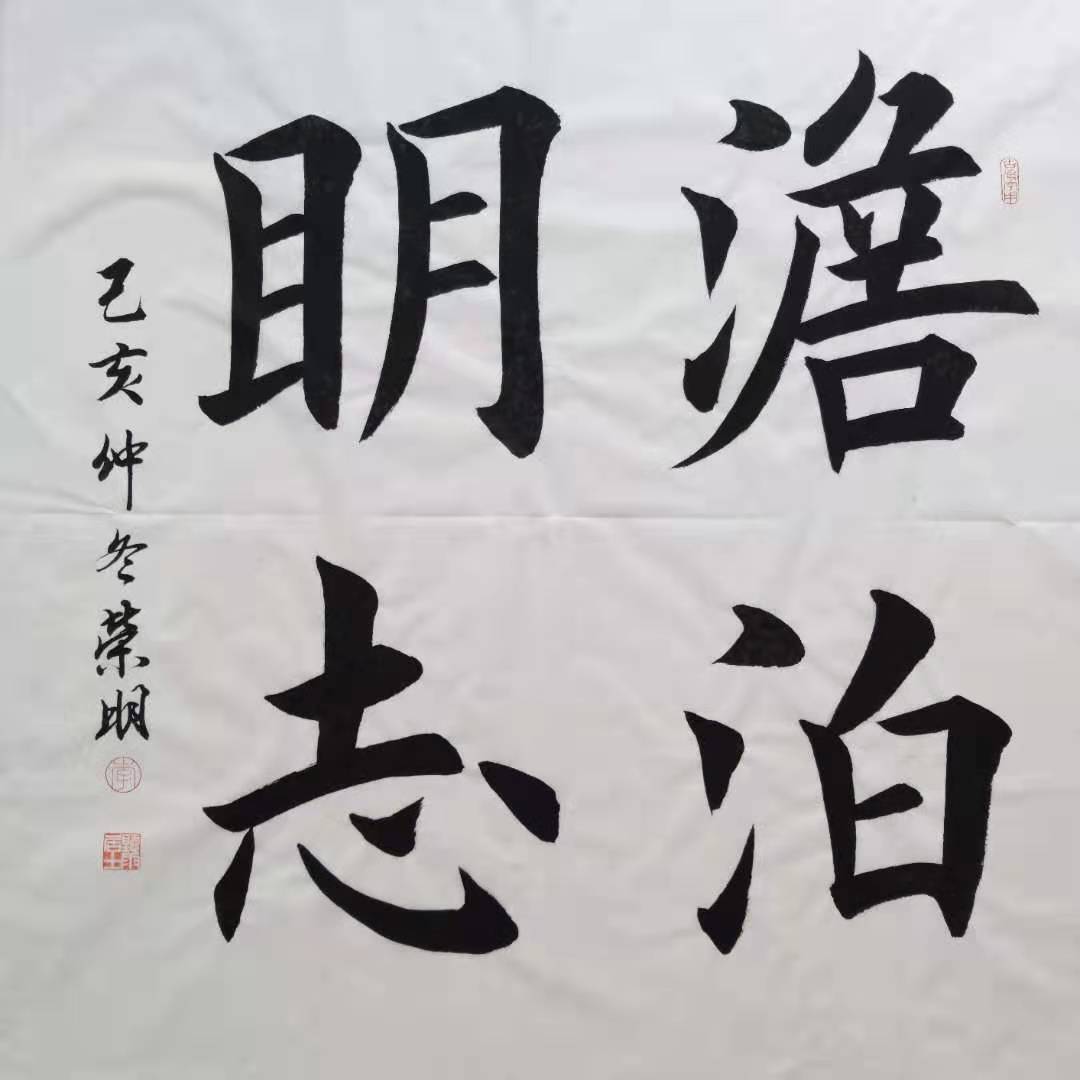 澹泊
明志
己亥仲冬荣明
李